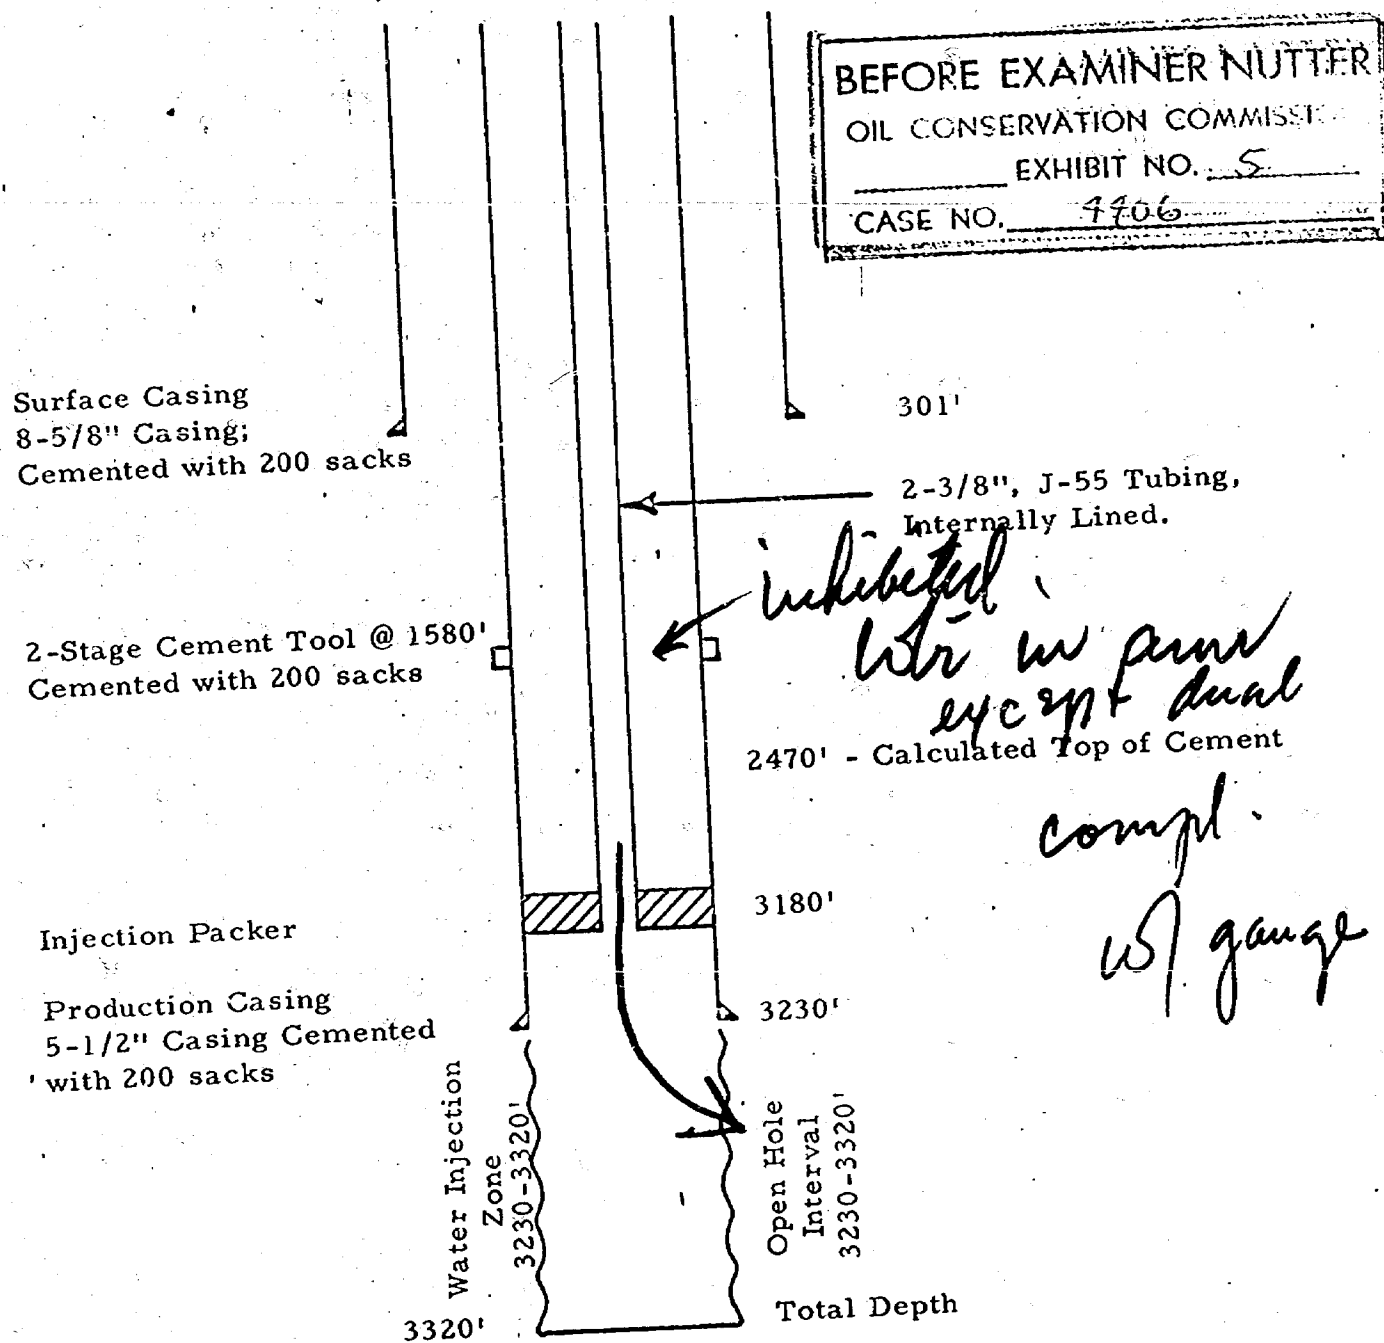 BEFORE EXAMINER NUTTER
OIL CONSERVATION COMMISSI
EXHIBIT NO. 5
CASE NO. 4406
Surface Casing
8-5/8" Casing;
Cemented with 200 sacks
301'
2-3/8", J-55 Tubing,
Internally Lined.
inhibited
wtr in
except dual
compl.
w/ gauge
2-Stage Cement Tool @ 1580'
Cemented with 200 sacks
2470' - Calculated Top of Cement
Injection Packer
3180'
Production Casing
5-1/2" Casing Cemented
with 200 sacks
3230'
Water Injection
Zone
3230-3320'
Open Hole
Interval
3230-3320'
3320'
Total Depth